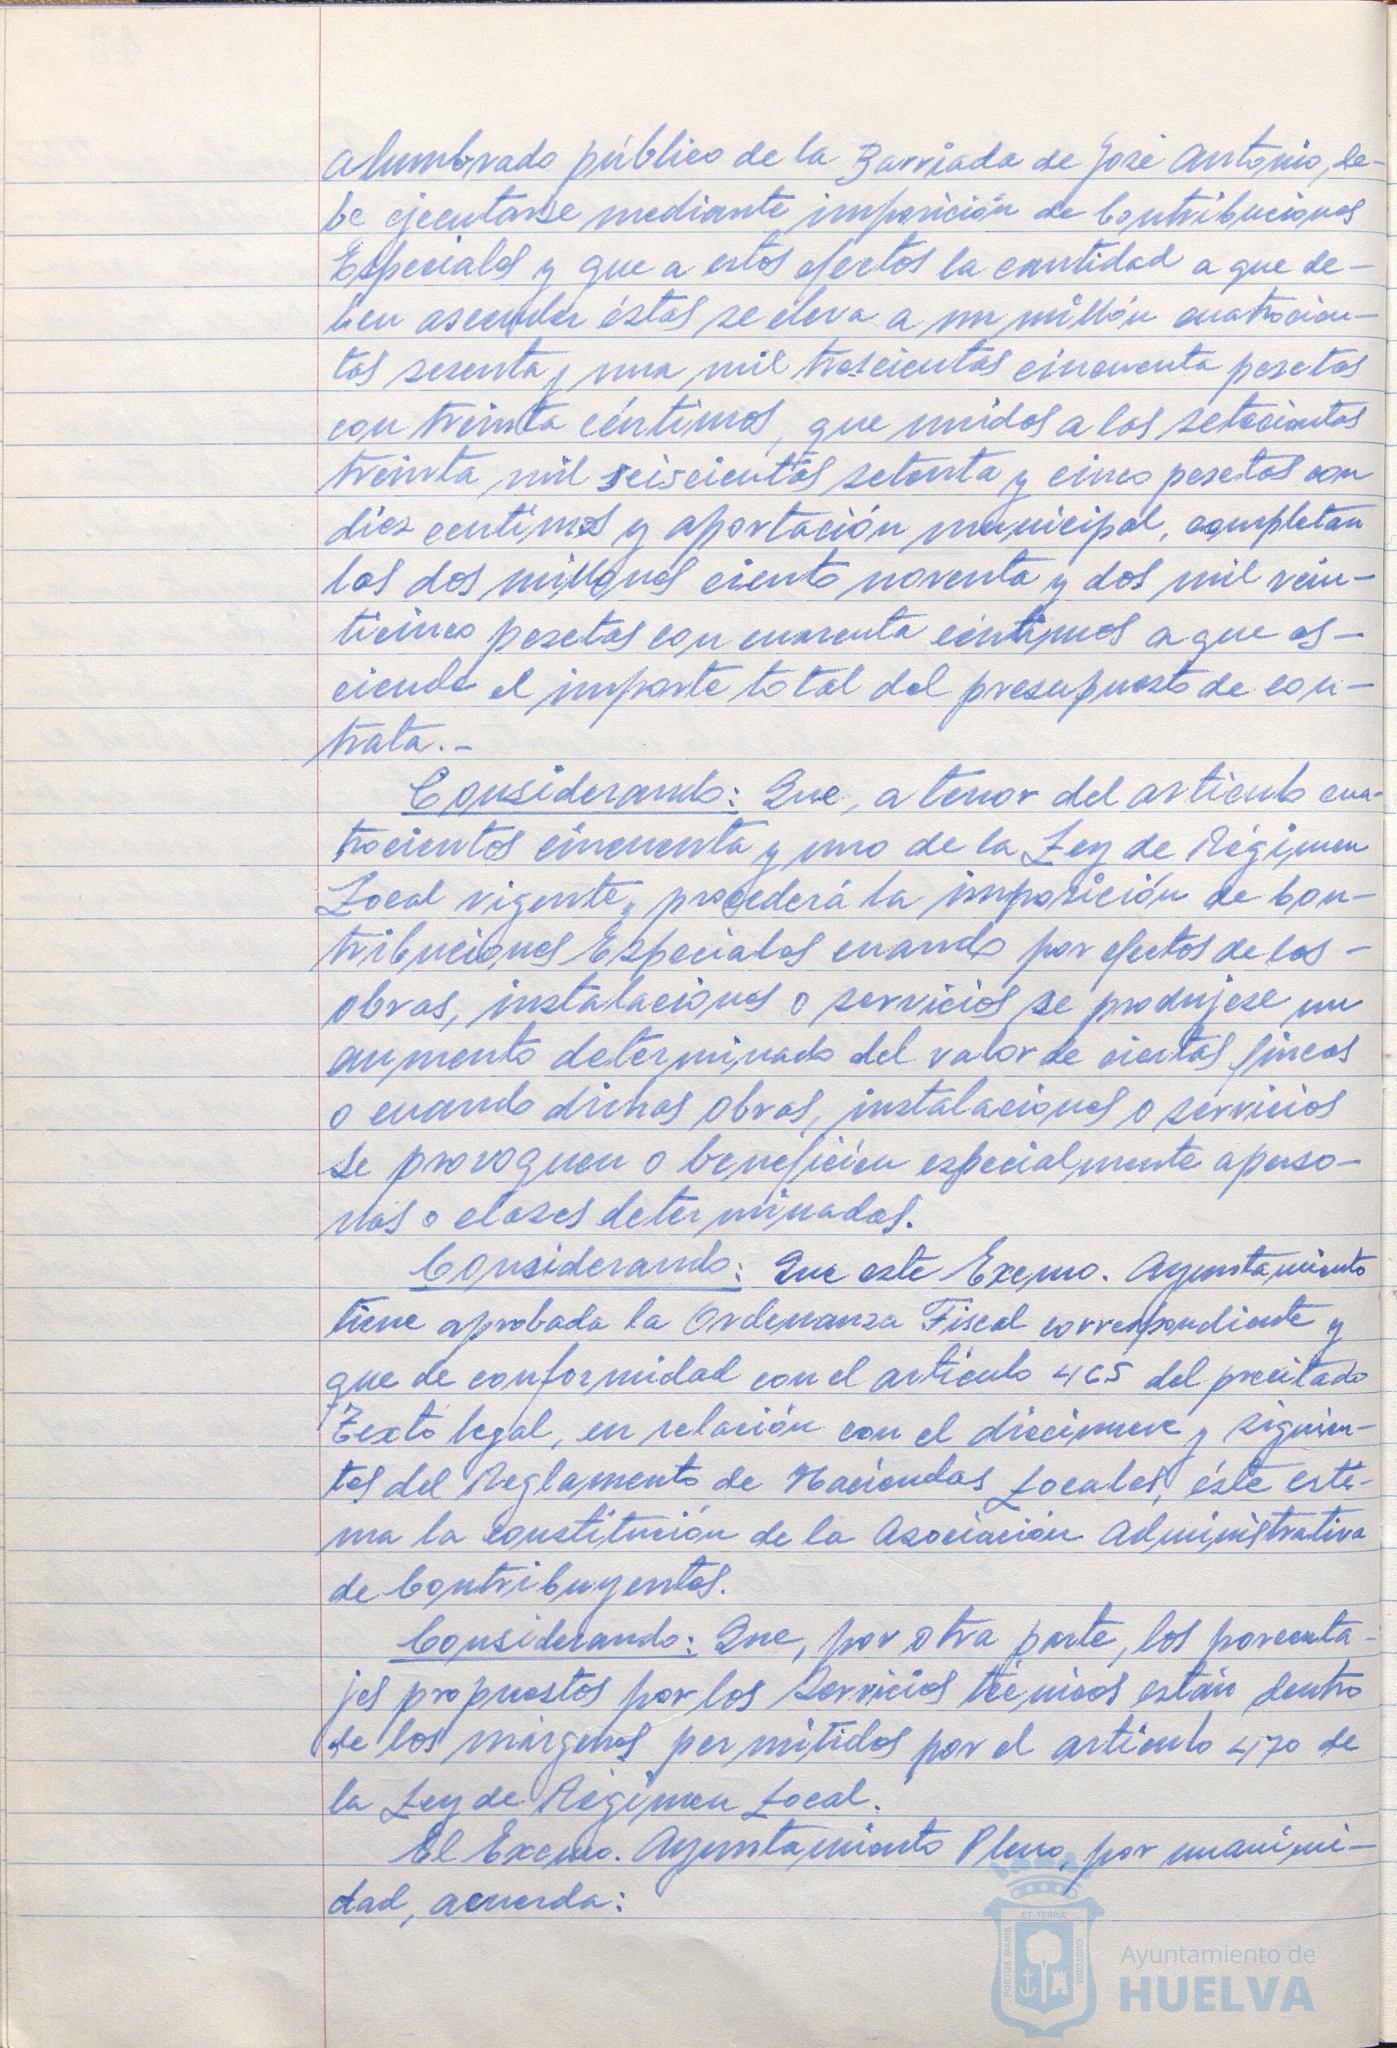 alumbrado público de la Barriada de José Antonio, de-
be ejecutarse mediante imposición de Contribuciones
Especiales y que a estos efectos la cantidad a que de-
ben ascender éstas se eleva a un millón cuatrocien-
tas sesenta y una mil trescientas cincuenta pesetas
con treinta céntimos, que unidos a las setecientas
treinta mil seiscientas setenta y cinco pesetas con
diez centimos y aportación municipal, completan
las dos millones ciento noventa y dos mil vein-
ticinco pesetas con cuarenta céntimos a que as-
ciende el importe total del presupuesto de con-
trata.-
Considerando: Que, a tenor del articulo cua-
trocientos cincuenta y uno de la Ley de Régimen
Local vigente, procederá la imposición de Con-
tribuciones Especiales cuando por efectos de las -
obras, instalaciones o servicios se produjese un
aumento determinado del valor de ciertas fincas
o cuando dichas obras, instalaciones o servicios
se provoquen o beneficien especialmente a perso-
nas o clases determinadas.
Considerando: Que este Excmo. Ayuntamiento
tiene aprobada la Ordenanza Fiscal correspondiente y
que de conformidad con el articulo 465 del precitado
Texto legal, en relación con el diecinueve y siguien-
tes del Reglamento de Haciendas Locales, éste esti-
ma la constitución de la Asociación Administrativa
de Contribuyentes.
Considerando: Que, por otra parte, los porcenta-
jes propuestos por los Servicios técnicos están dentro
de los márgenes permitidos por el articulo 470 de
la Ley de Régimen Local.
El Excmo. Ayuntamiento Pleno, por unanimi-
dad, acuerda:
PORTUS MARIS ET TERRAE CUSTODIA
Ayuntamiento de
HUELVA